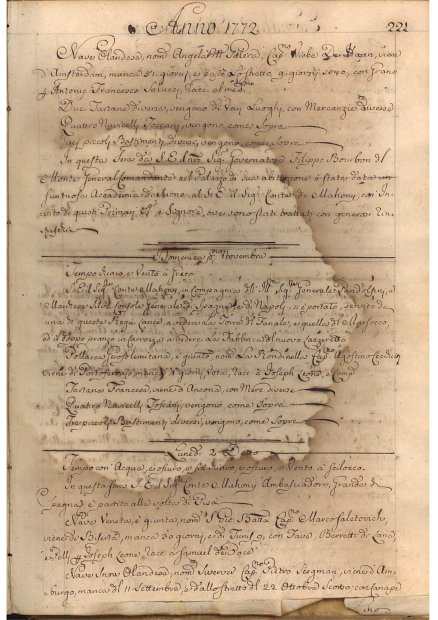 Anno 1772
221
Nave Olandese, nom.ª Angel M Valeria, Cap.º Wobe De Haan, viene
d'Amsterdam, manca 51 giorni, e passò lo stretto 9 giorni sono, con Grano
Antonio Francesco Salucci, Racc. al med.º
Due Tartane diverse, vengono da Varj Luoghi, con Mercanzie diverse
Quattro Navicelli Toscani, vengono, come Sopra
Bastimenti diversi, vengono, come Sopra
In questa Sera da S. E. il Sig.
Monte General Comandante nel Palazzo di Sua abitazione è stata data un
suntuosa Accademia di Suono al S. E. il Sig.r Conte de Mahony, con In
vito di questi Primari, e Signore, ove sono stati trattati con generosi rin
freschi
Domenica p.mo Novembre
Tempo Scuro, e Vento à Greco
S. E. il Sig.r Conte Mahony, in compagnia del Sig.r Generale
Console Generale di Spagna, e di Napoli, si è portato, servito da
una di queste Regie Lance a vedere la Torre del Fanale, e quella del Marzocco,
ed il doppo pranzo in Carrozza a vedere la Fabbrica del nuovo Lazzeretto
Pollacca Gerosolimitana, è giunta, nom.ª La Rondinella Cap.º Agostino
viene da Portoferraio, manca giorni, Vota, Racc. à Joseph Leone, e Comp.
Tartana Francese, viene d'Ancona, con Merci diverse
Quattro Navicelli Toscani, vengono, come Sopra
Tre piccoli Bastimenti diversi, vengono, come Sopra
Lunedì 2 Detto
Tempo con Acqua, e oscuro, e poi Scuro, e oscuro, e Vento à Scilocco.
In questa sera S. E. il Sig.r Conte Mahony Ambasciadore, Grande di
Spagna è partito alla volta di Pisa
Nave Veneta, è giunta, nom.ª S. Gio. Batta Cap.º Marco
viene da Biserta, manca 30 giorni, e di Tunis, con Fave, Berretti di Lana,
e Pelli p. Joseph Leone, Racc. à Samuel
Nave Snow Olandese, nom.ª Cap.º Pietro Seegman, viene d'Am
burgo, manca dell' 11 Settembre, e dallo stretto del 22 Ottobre Scorso, con
che